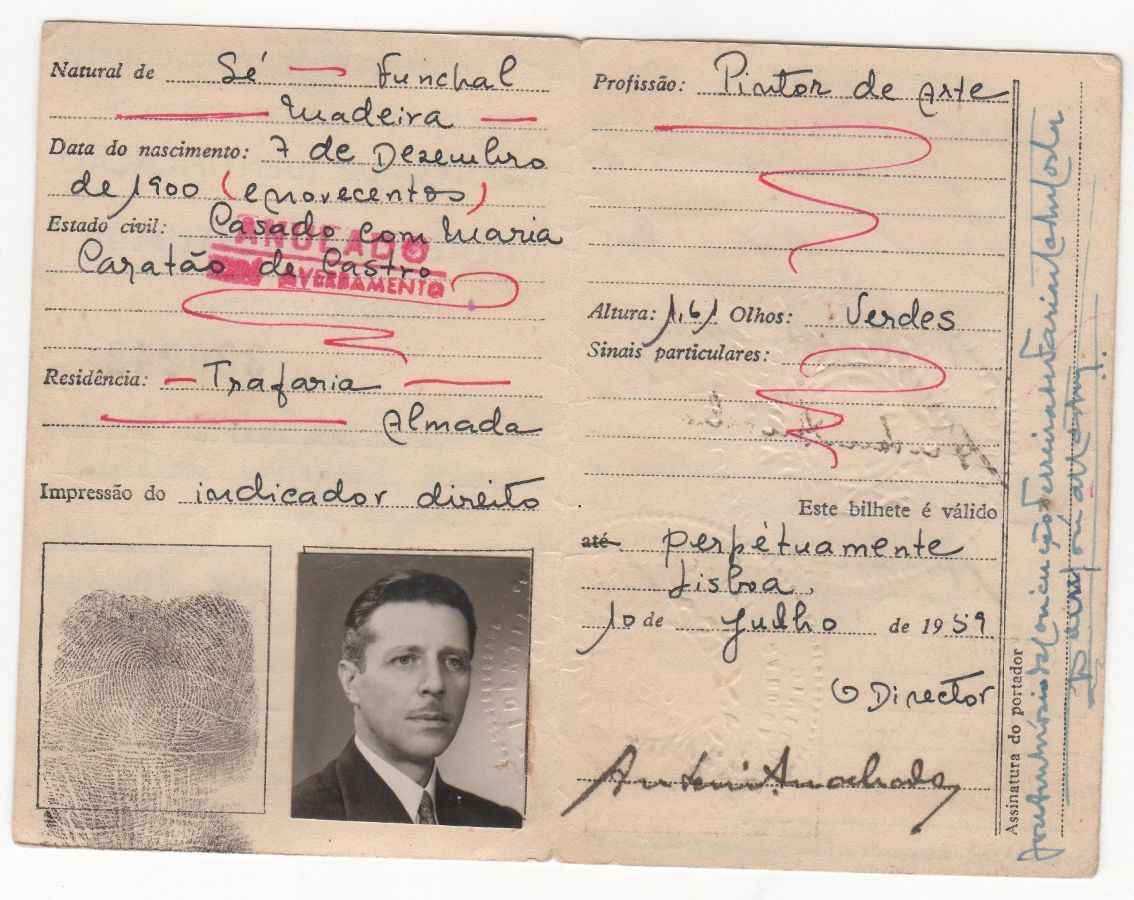 Natural de Sé — Funchal
— Madeira —
Data do nascimento: 7 de Dezembro
de 1900 (e novecentos)
Estado civil: Casado com Maria
Caratão de Castro
ANULADO
AVERBAMENTO
Residência: — Trafaria —
— Almada
Impressão do indicador direito
Profissão: Pintor de Arte
Altura: 1,61 Olhos: Verdes
Sinais particulares:
Este bilhete é válido
até perpétuamente
Lisboa,
10 de Julho de 1959
O Director
Assinatura do portador